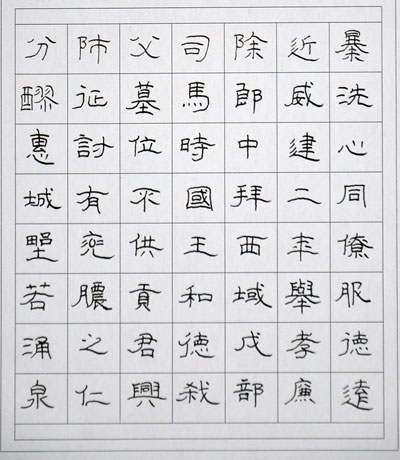 暴洗心同僚服德遠
近威建二年舉孝廉
除郎中拜西域戊部
司馬時國王和德弒
父墓位不供貢君興
師征討有兖膿之仁
分醪惠城野若涌泉